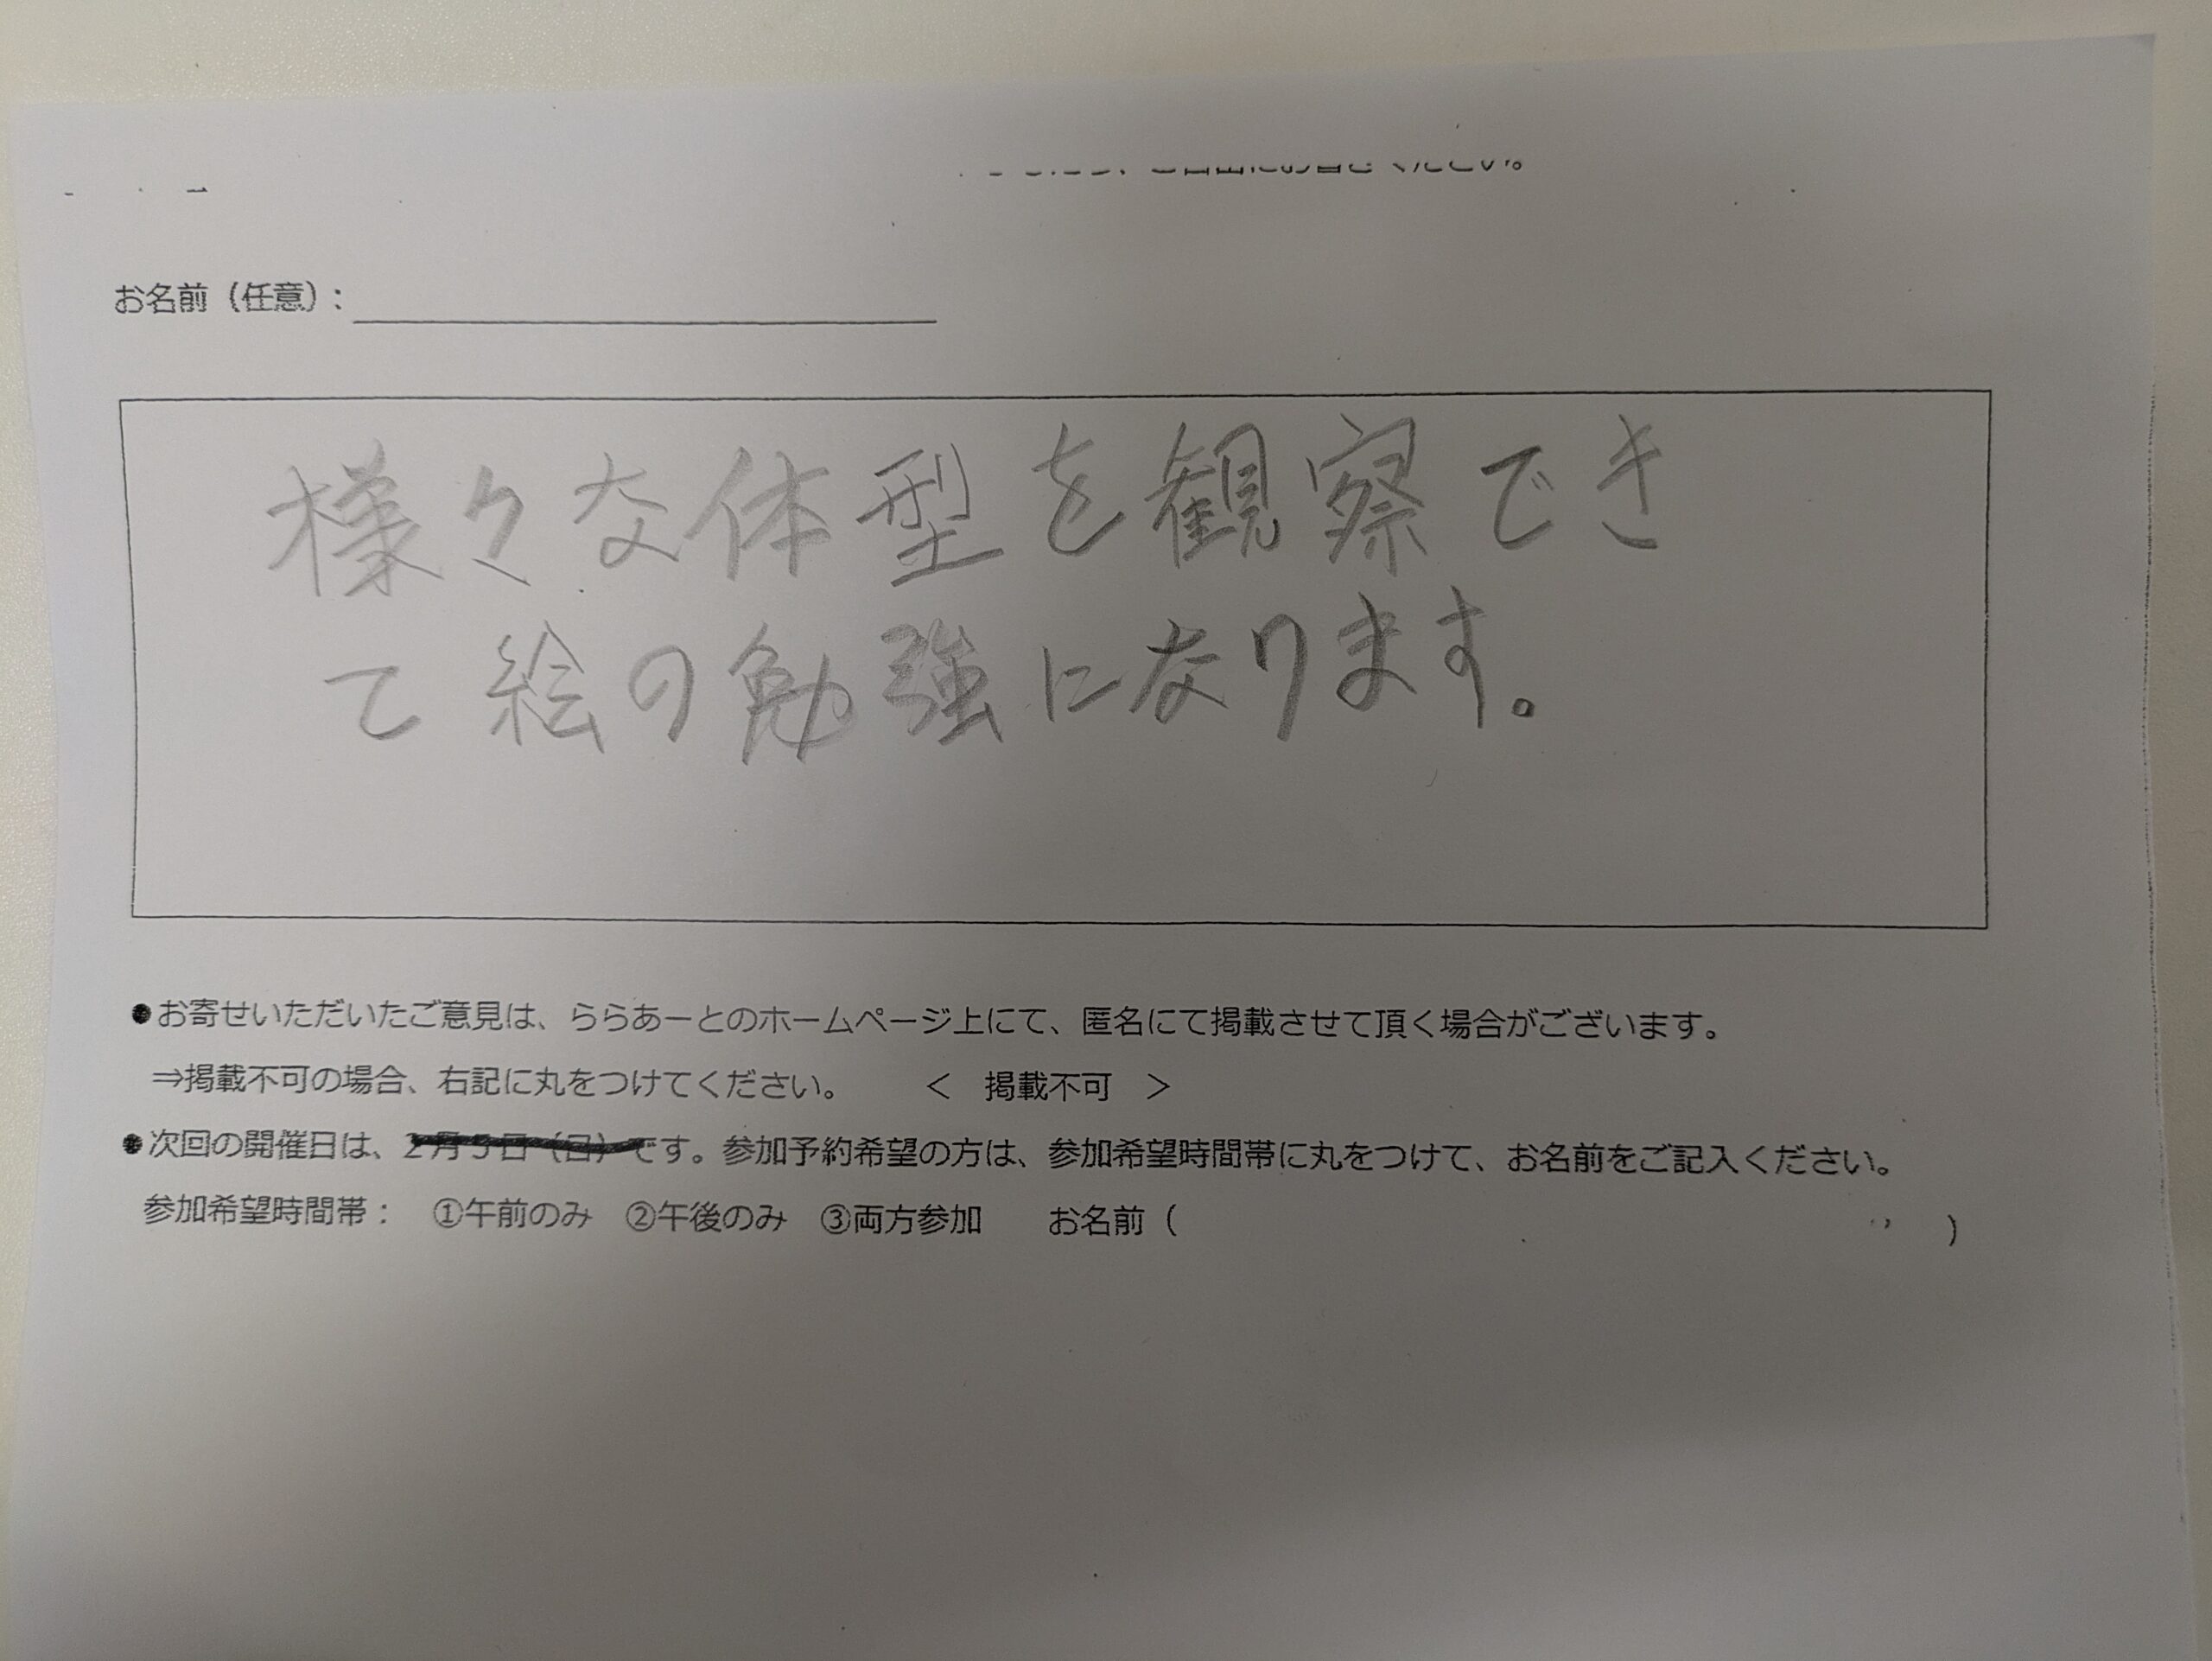 お名前（任意）：
様々な体型を観察でき
て絵の勉強になります。
●お寄せいただいたご意見は、ららあーとのホームページ上にて、匿名にて掲載させて頂く場合がございます。
⇒掲載不可の場合、右記に丸をつけてください。 ＜ 掲載不可 ＞
●次回の開催日は、2月5日（日）です。参加予約希望の方は、参加希望時間帯に丸をつけて、お名前をご記入ください。
参加希望時間帯： ①午前のみ ②午後のみ ③両方参加 お名前（ ）